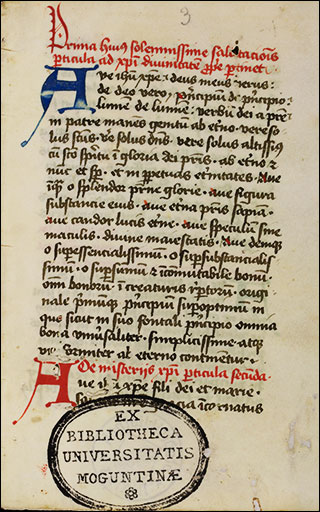 3
Prima huius solemnissime salutacionis
pticula ad xpi divinitatem ppe ptinet
Aue ihu xpe · deus meus verus ·
de deo vero · principiu de principio
lumen de lumine · verbu dei a pre
in patre manes genitu ab etno · vere so
lus scus · Ve solus dns · vere solus altissim
cu sco spiritu i gloria dei pris · ab etno z
nuc et sp · et in ppetuas etnitates · Aue
o splendor prne glorie · aue figura
substancie eius · aue etna pris sapia ·
aue candor lucis etne · aue speculu sine
maculis · divine maiestatis · Aue
o supessencialissimu · o supsubstancialis
simu · o supsumu z icomutabile bonu ·
om bonoru i creaturis · origi
nale principiu supoptimu in
quo sicut in suo fontali principio omnia
bona vniusaliter · simplicissime atque
vniformiter ab eterno continentur ·
De misterijs xpi pticula secunda ·
Aue ihu xpe fili dei et marie ·
icornatus
EX
BIBLIOTHECA
UNIVERSITATIS
MOGUNTINÆ